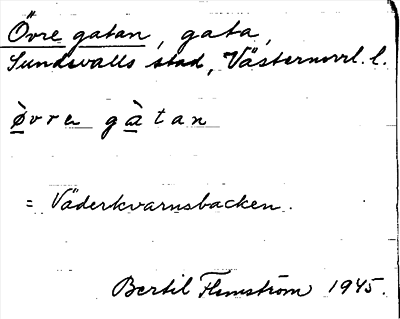 Övre gatan, gata,
Sundsvalls stad, Västernorrl. l.
ø̀vre gàtan
= Väderkvarnsbacken.
Bertil Flemström 1945.